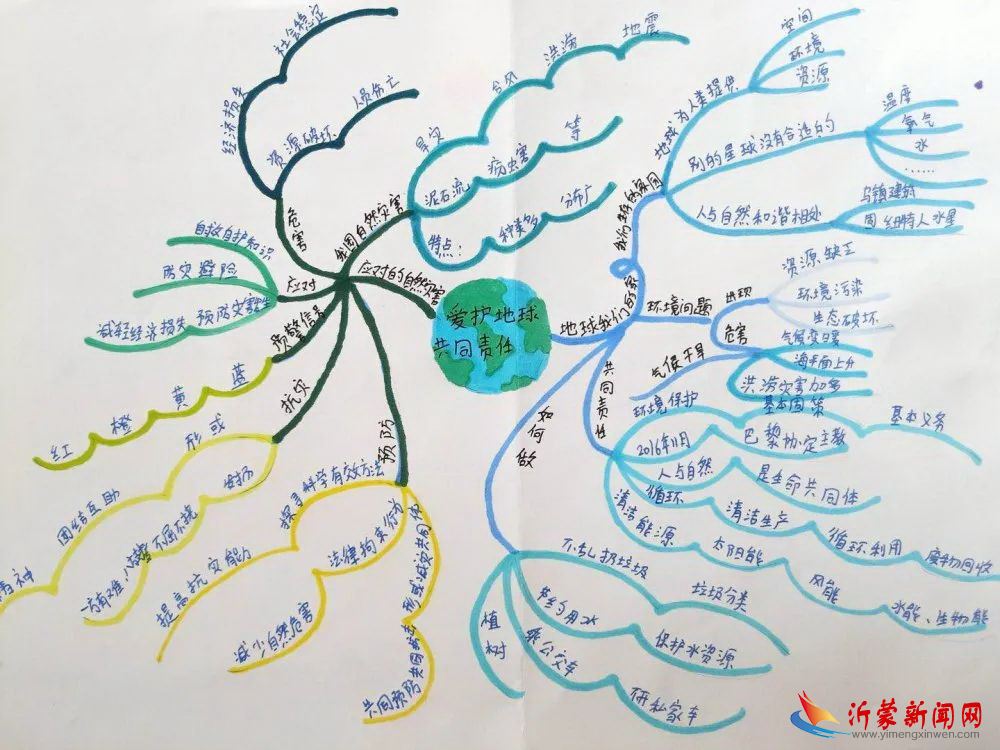 爱护地球
共同责任
应对的自然灾害
我国自然灾害
旱灾
台风
洪涝
地震
泥石流
病虫害
等
特点:
种类多
分布广
危害
经济损失
社会稳定
资源破坏
人员伤亡
应对
自救自护知识
防灾避险
减轻经济损失
预防灾害发生
预警信号
蓝
黄
橙
红
抗灾
形成
团结互助
精神
发扬
不屈不挠
预防
探寻科学有效方法
提高抗灾能力
法律拘束行为
减少自然危害
形成减灾共同体
共同预防共同抗击
地球我们的家
地球为人类提供
空间
环境
资源
别的星球没有合适的
温度
氧气
水
……
人与自然和谐相处
乌镇建筑
因纽特人水屋
环境问题
出现
资源缺乏
环境污染
生态破坏
危害
气候变日害
海平面上升
洪涝灾害加多
气候干旱
共同责任
环境保护
基本国策
基本义务
2016年11月
巴黎协定生效
人与自然
是生命共同体
循环
清洁生产
循环利用
废物回收
清洁能源
太阳能
风能
水能、生物能
如何做
不乱扔垃圾
垃圾分类
节约用水
保护水资源
乘公交车
植树
沂蒙新闻网
www.yimengxinwen.com